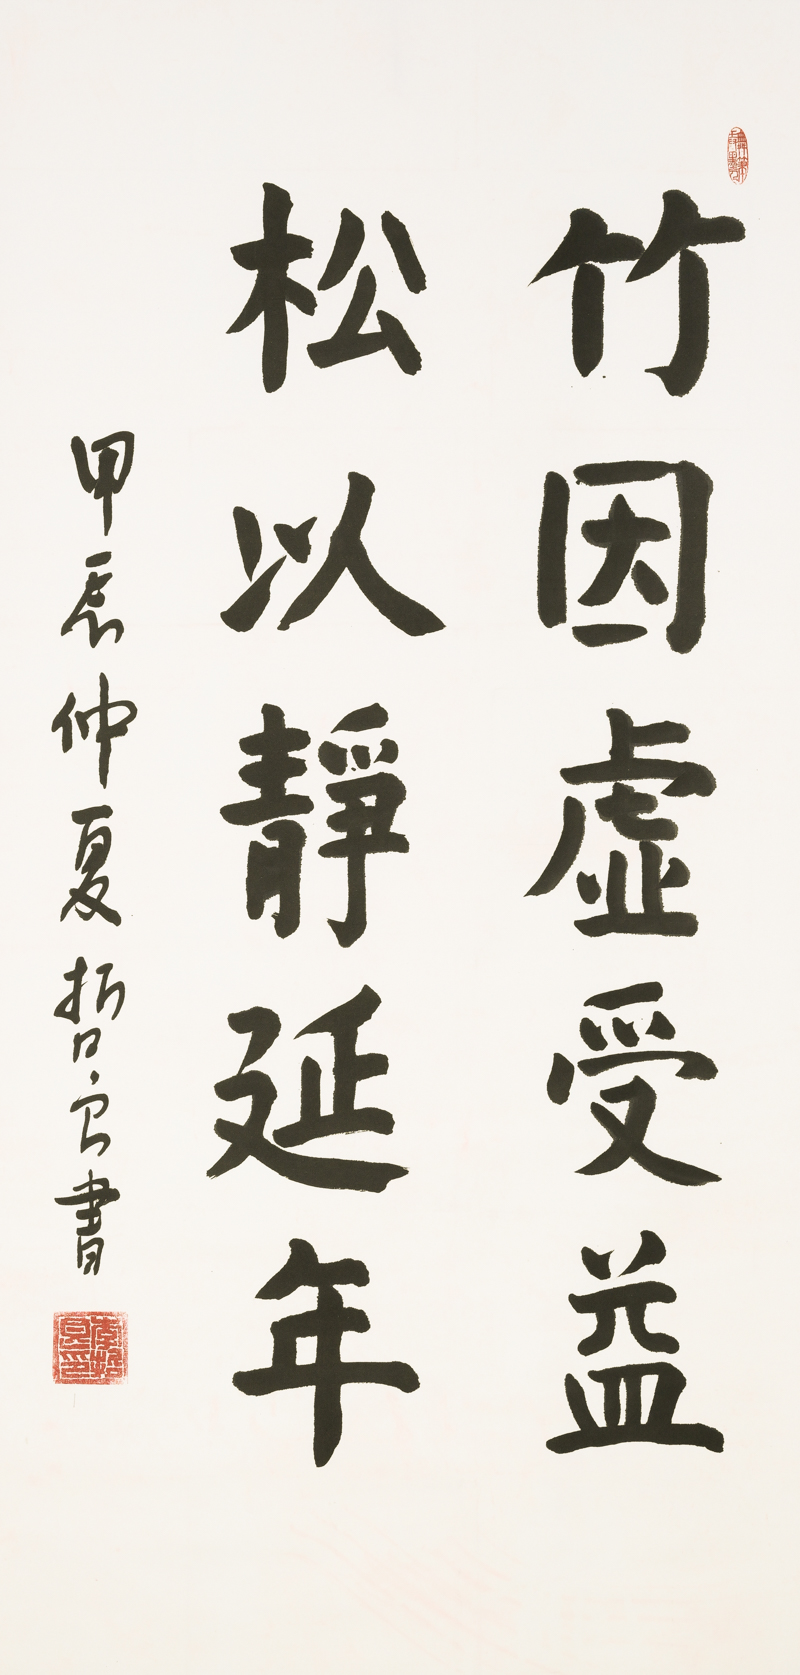 竹因虛受益
松以靜延年
甲辰仲夏哲良書